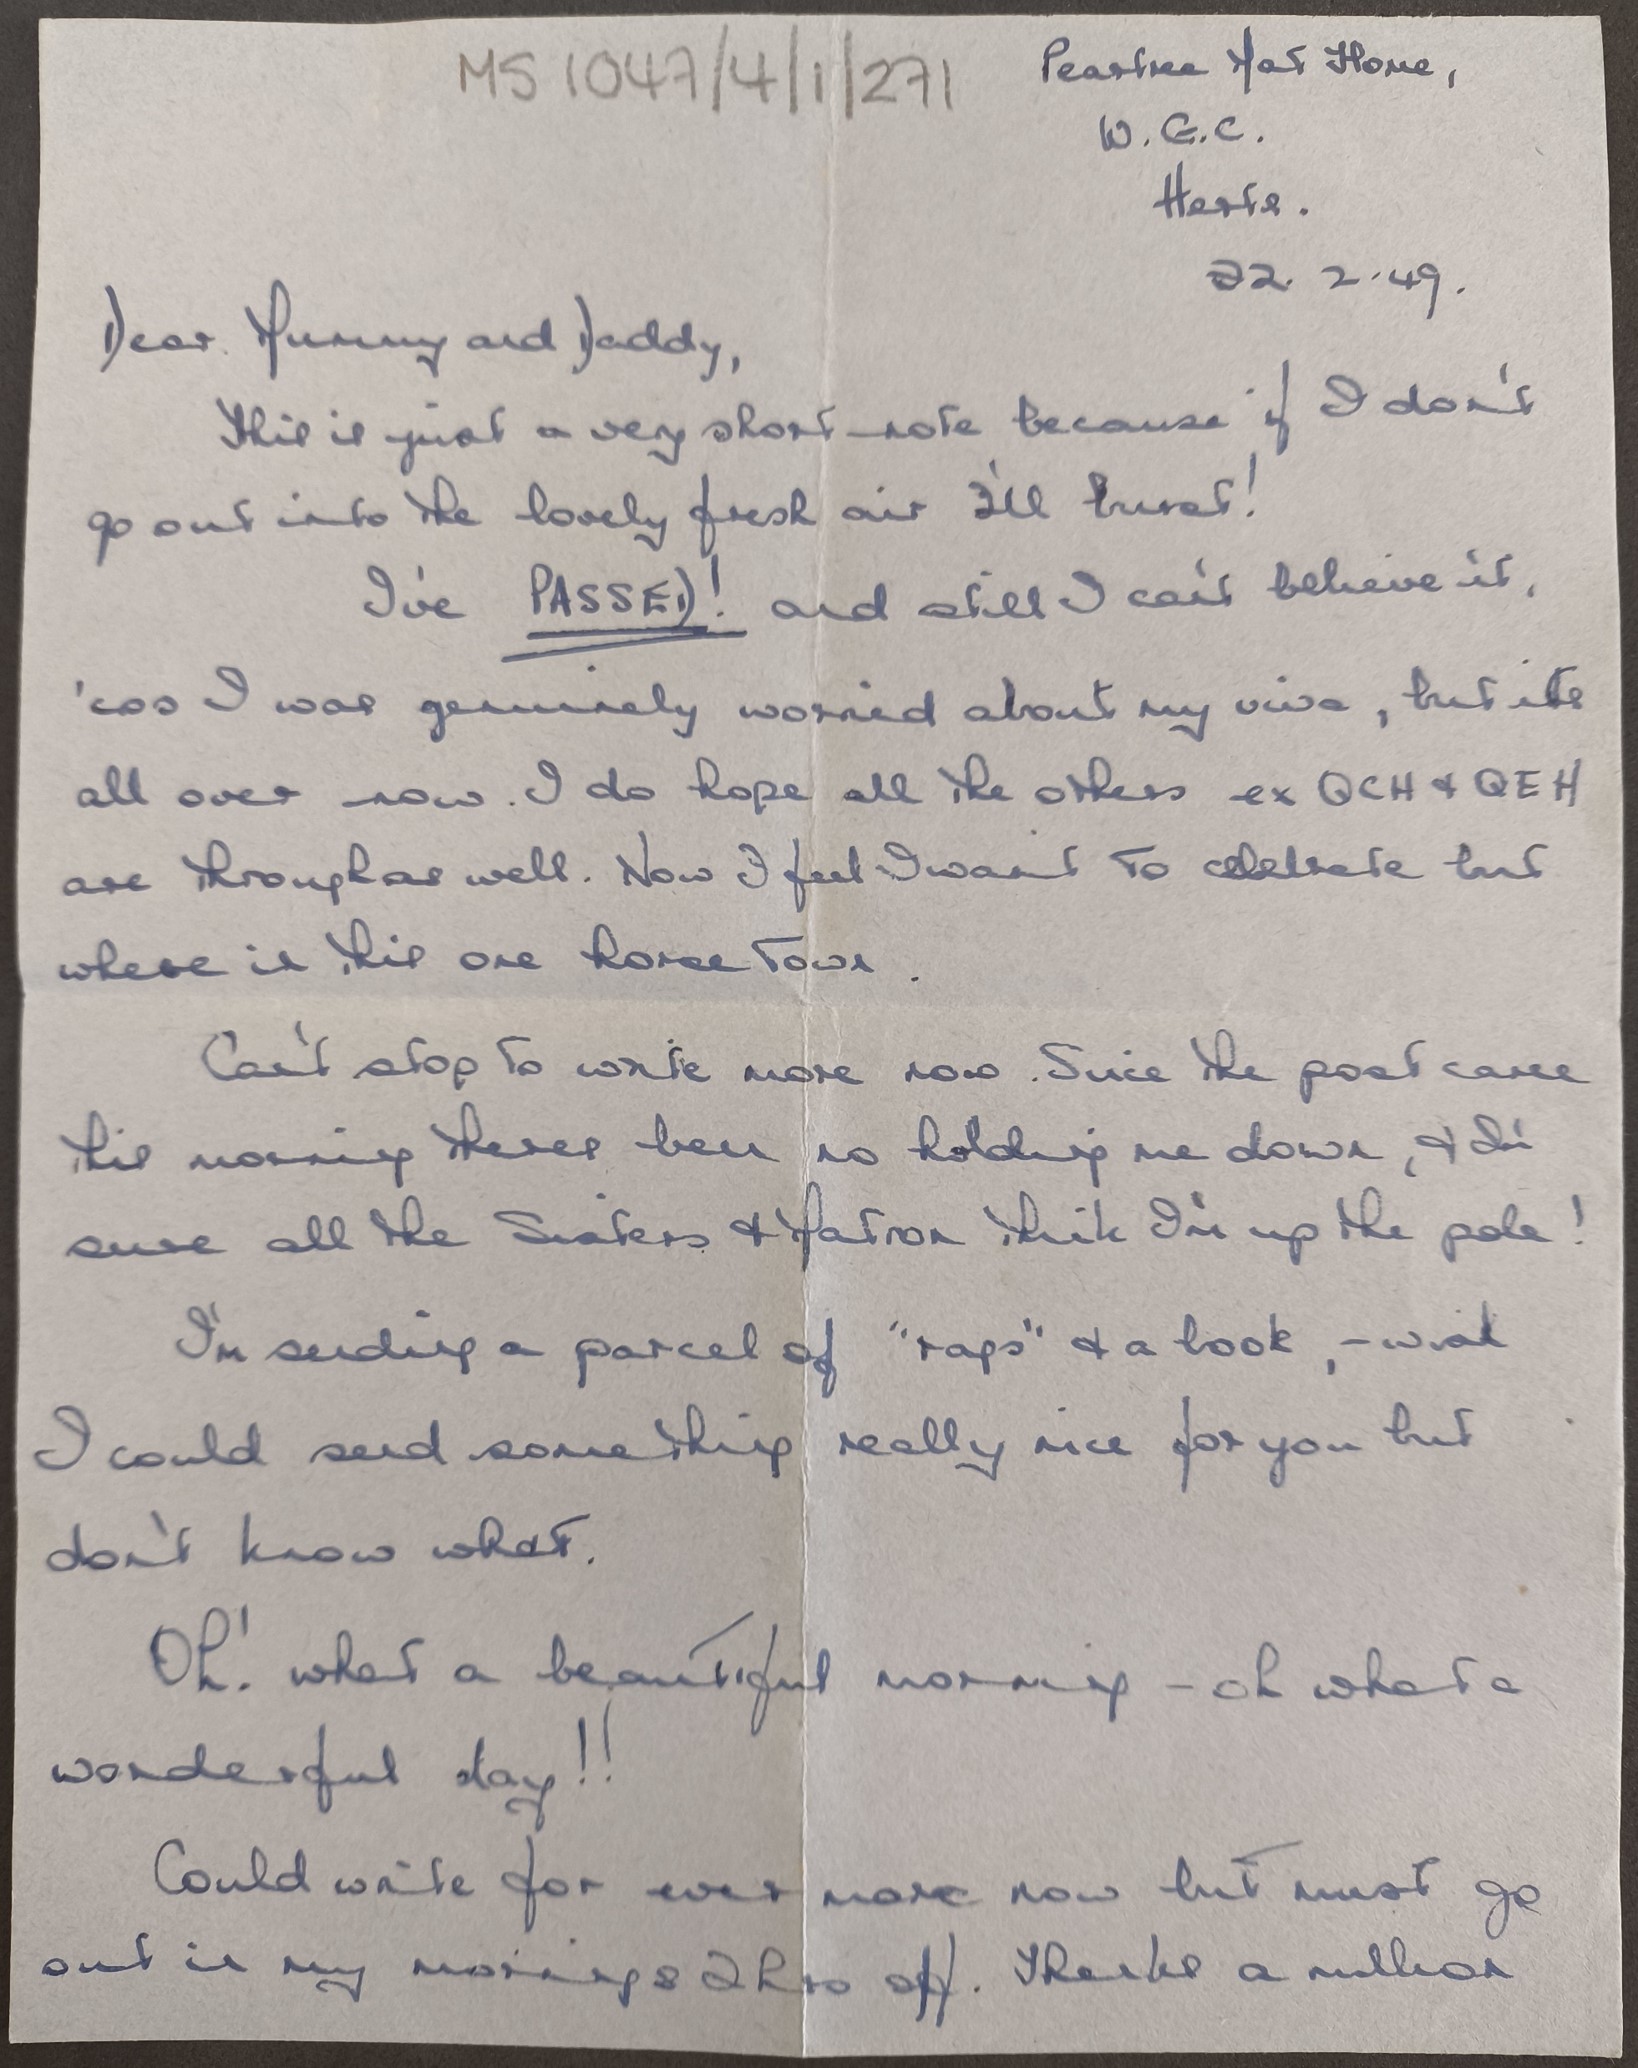 MS 1047/4/1/271
Peartree Mat Home,
W.G.C.
Herts.
22.2.49.
Dear Mummy and Daddy,
This is just a very short note because if I don't
go out into the lovely fresh air I'll burst!
I've PASSED! and still I can't believe it,
'cos I was genuinely worried about my viva, but its
all over now. I do hope all the others ex QCH & QEH
are through as well. Now I feel I want to celebrate but
where in this one horse town.
Can't stop to write more now. Since the post came
this morning theres been no holding me down, & I'm
sure all the Sisters & Matron think I'm up the pole!
I'm sending a parcel of "rags" & a book, - wish
I could send something really nice for you but
don't know what.
Oh! what a beautiful morning - oh what a
wonderful day!!
Could write for ever more now but must go
out in my mornings 2 hrs off. Thanks a million